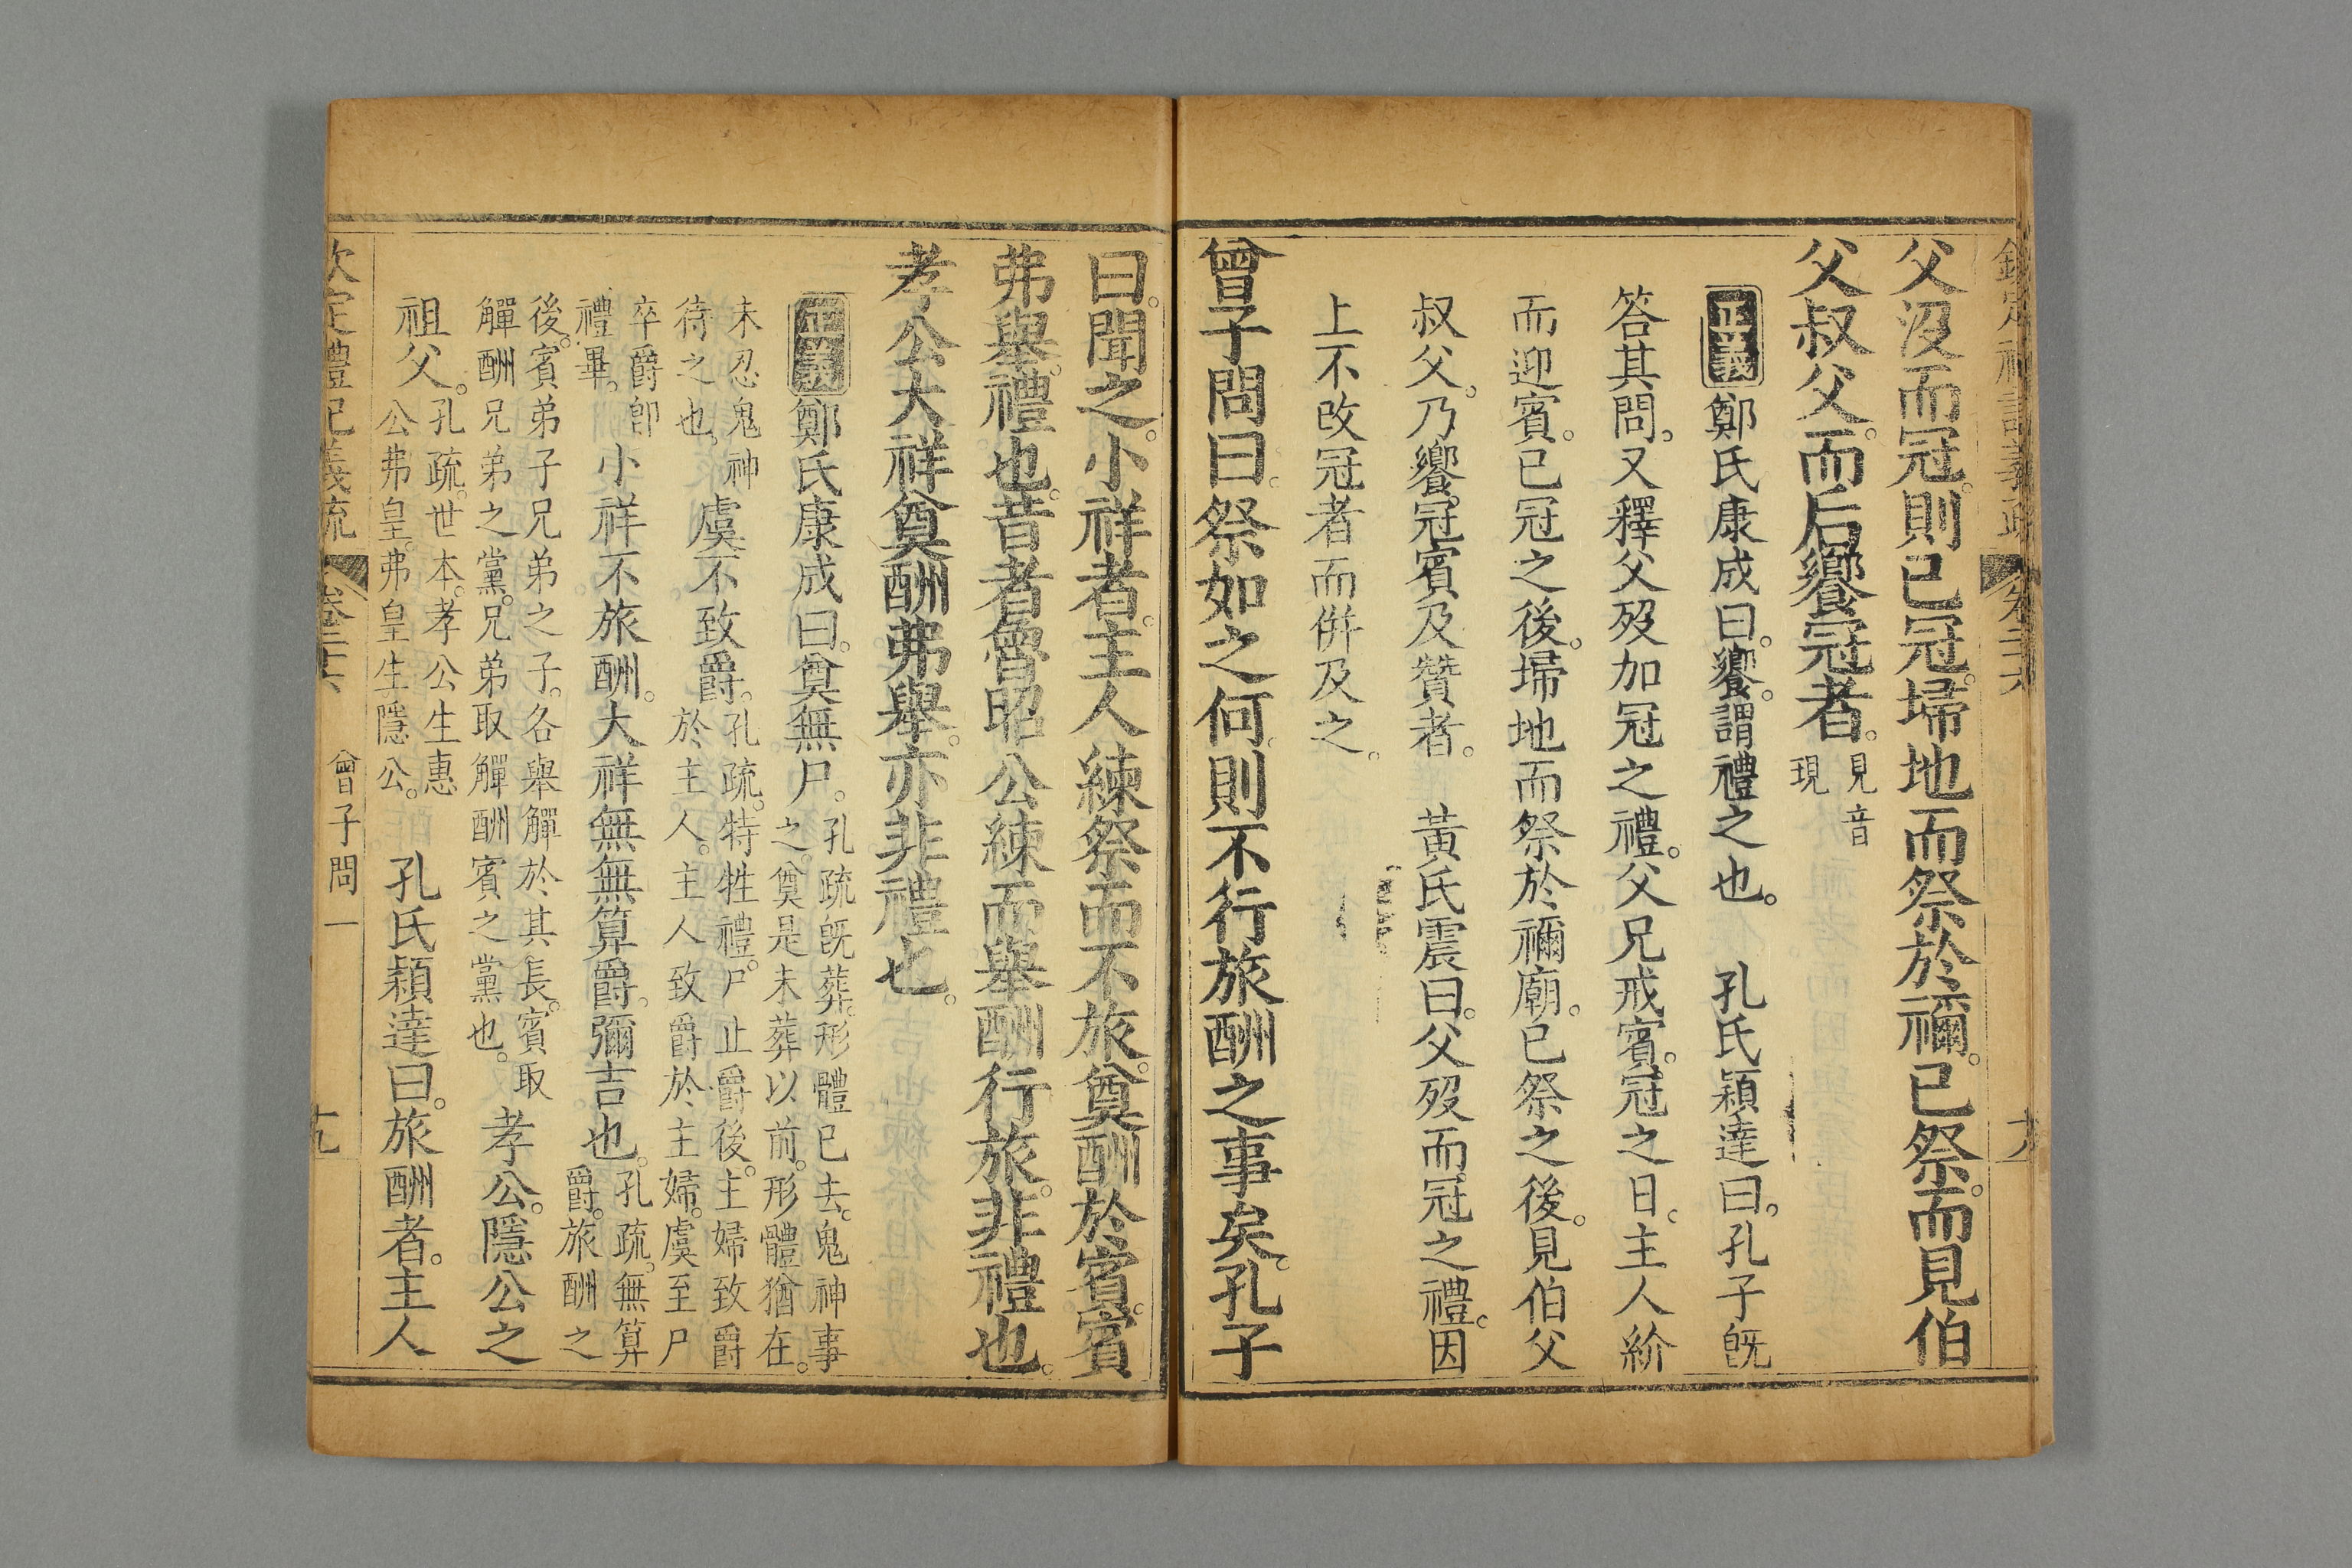 父沒而冠則已冠埽地而祭於禰已祭而見伯
父叔父而后饗冠者見音現
正義鄭氏康成曰饗謂禮之也。 孔氏穎達曰孔子旣
答其問又釋父歿加冠之禮父兄戒賓冠之日主人紒
而迎賓已冠之後埽地而祭於禰廟已祭之後見伯父
叔父乃饗冠賓及贊者。 黃氏震曰父歿而冠之禮因
上不改冠者而併及之。
曾子問曰祭如之何則不行旅酬之事矣孔子
曰聞之小祥者主人練祭而不旅奠酬於賓賓
弗舉禮也昔者魯昭公練而舉酬行旅非禮也
孝公大祥奠酬弗舉亦非禮也。
正義鄭氏康成曰奠無尸。孔疏旣葬形體已去鬼神事
之奠是未葬以前形體猶在。
未忍鬼神
待之也。虞不致爵。孔疏特牲禮尸止爵後主婦致爵
於主人主人致爵於主婦虞至尸
卒爵卽
禮畢。小祥不旅酬。大祥無無算爵彌吉也。孔疏無算
爵旅酬之
後賓弟子兄弟之子各舉觶於其長賓取
觶酬兄弟之黨兄弟取觶酬賓之黨也。孝公隱公之
祖父。孔疏世本孝公生惠
公弗皇弗皇生隱公。 孔氏穎達曰旅酬者主人
欽定禮記義疏 卷二十六 曾子問一 十九